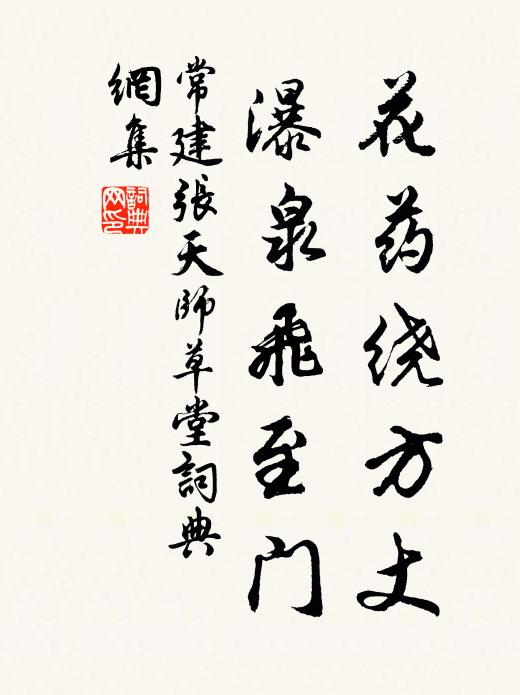 花药绕方丈
瀑泉飞至门
常建張天師草堂詞典
網集
詞典
网印